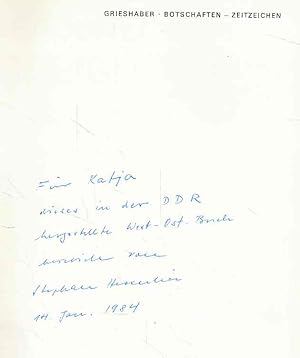 GRIESHABER · BOTSCHAFTEN – ZEITZEICHEN
Für Katja
dieses in der DDR
hergestellte West-Ost-Buch
herzlich von
Stephan Hermlin
14. Jan. 1984